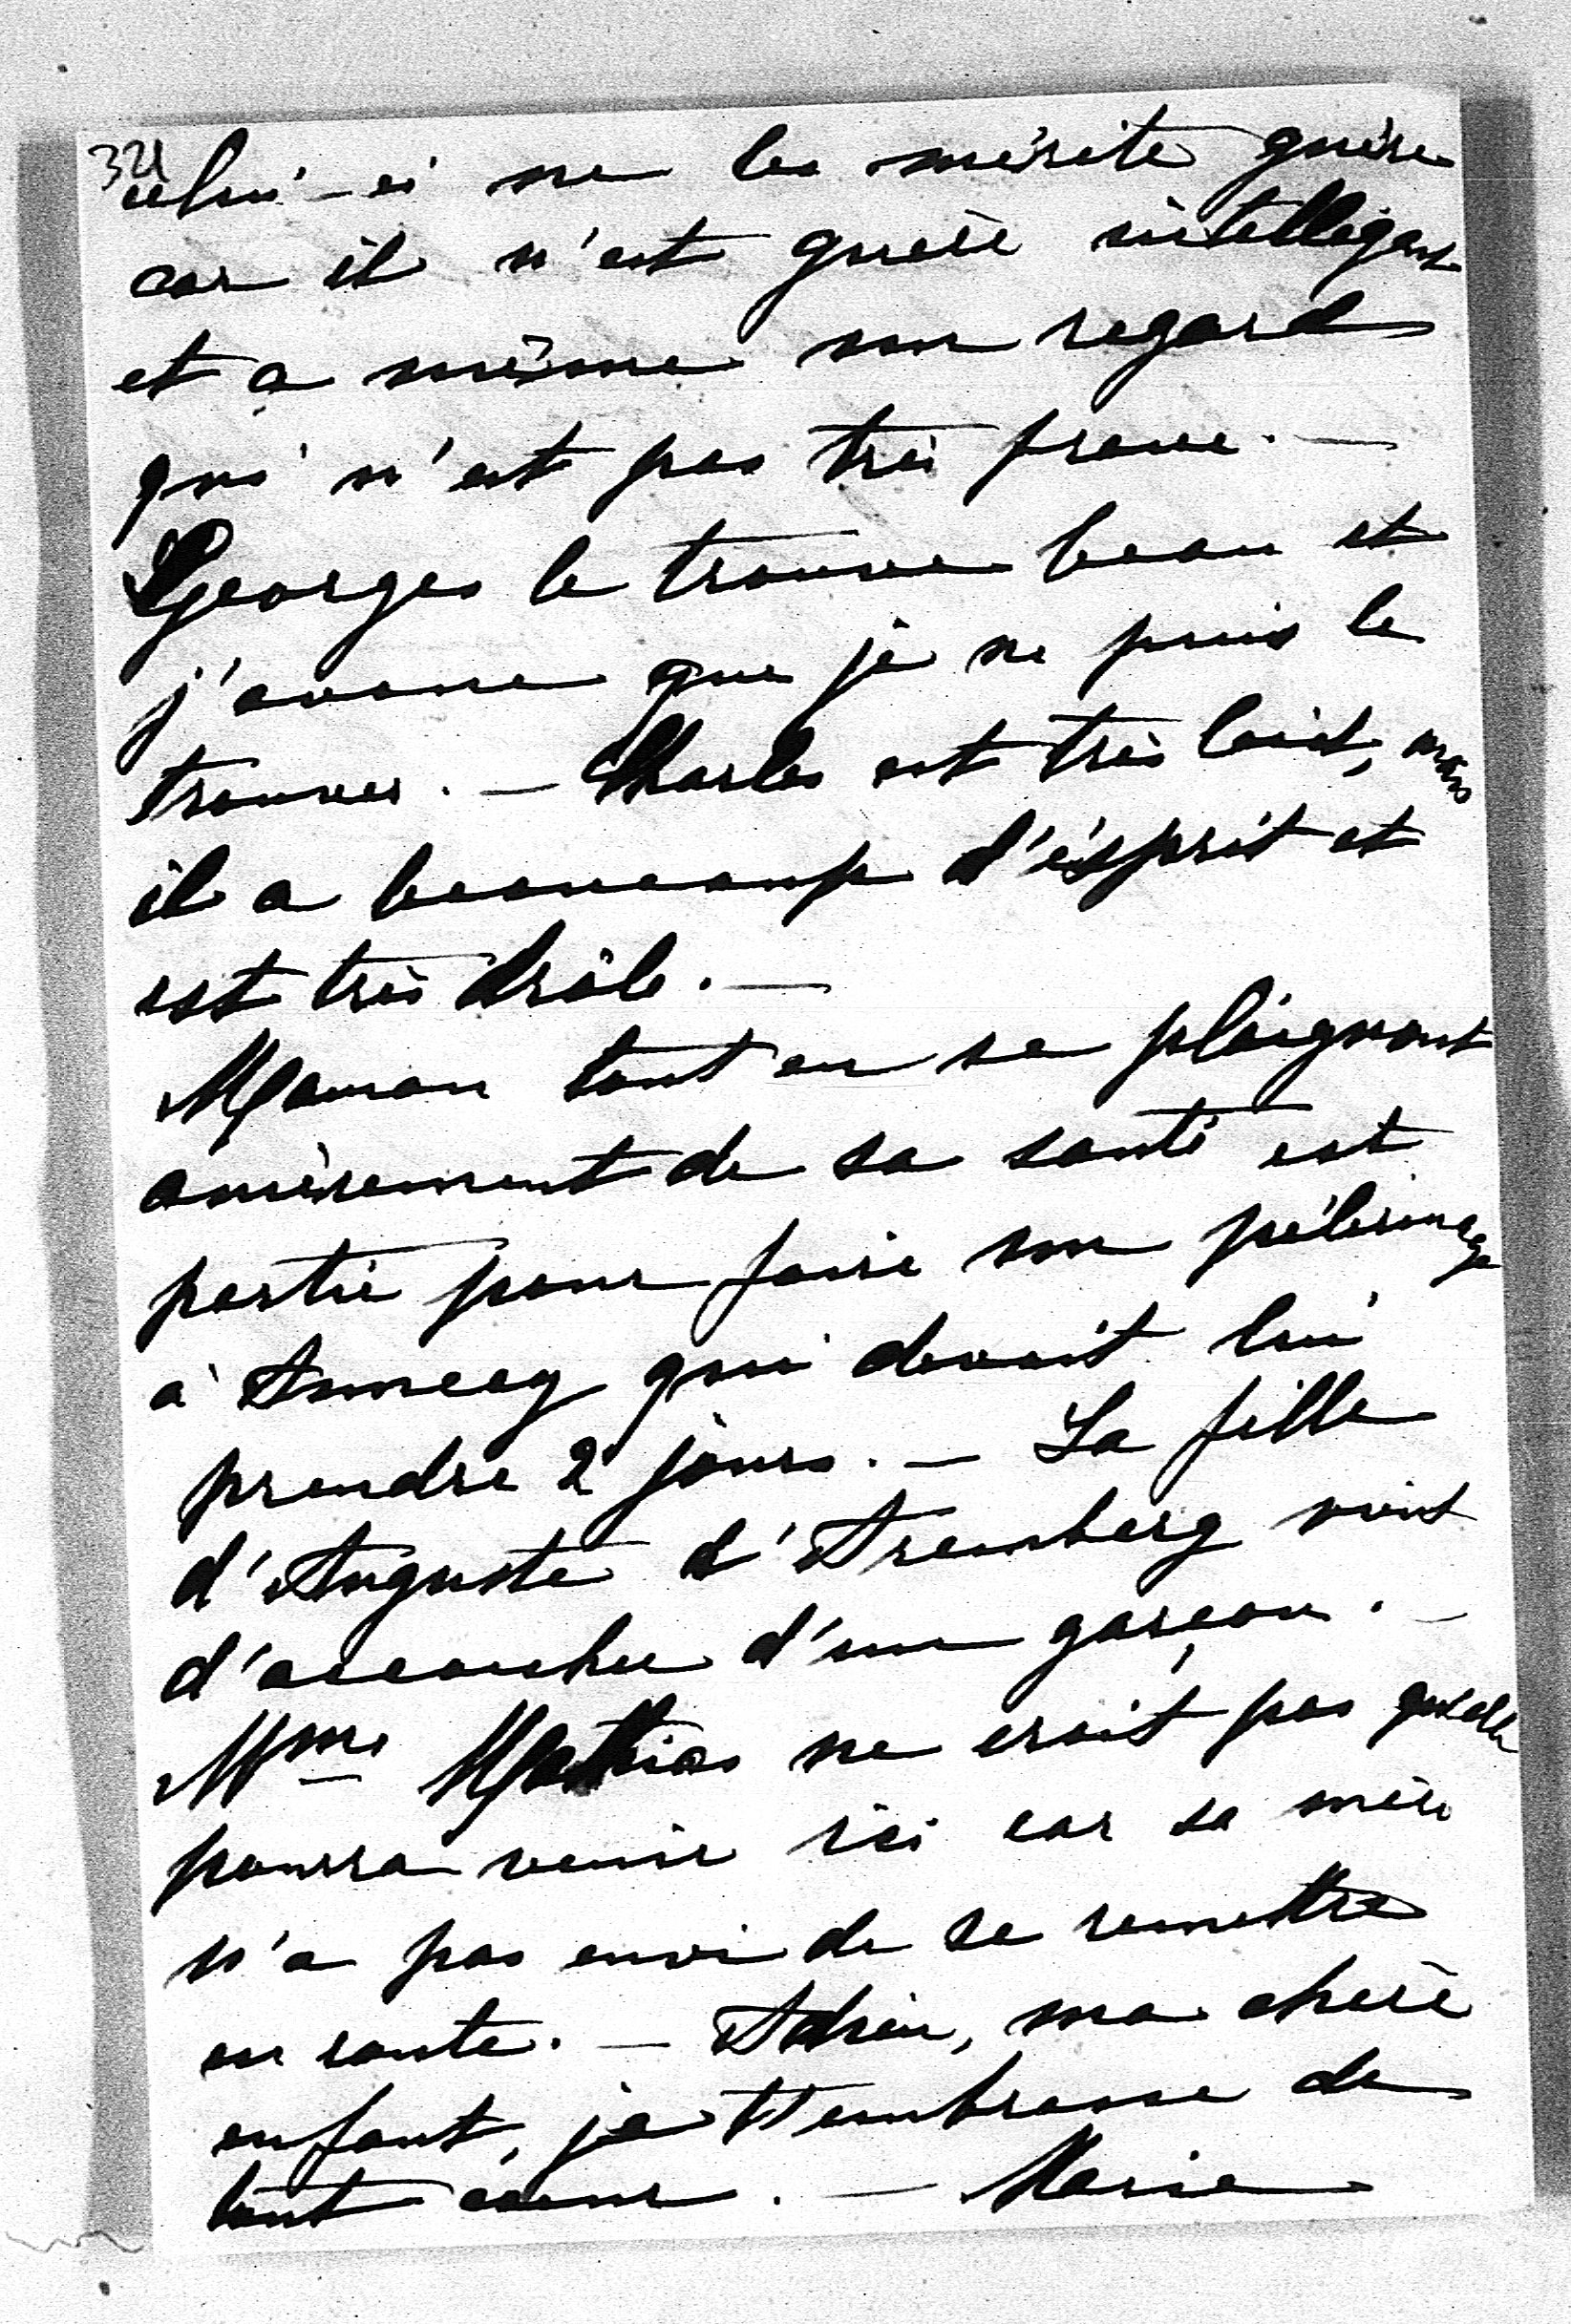 321
celui-ci ne les mérite guère
car il n'est guère intelligent
et a même un regard
qui n'est pas très
Georges le trouve beau et
j'avoue que je ne puis le
trouver. — Charles est très laid, mais
il a beaucoup d'ésprit et
est très drôle. —
Maman tout en se plaignant
amèrement de sa santé est
partie pour faire son pélerinage
à Annecy qui devait lui
prendre 2 jours. — La fille
d'Auguste d'Aremberg vient
d'accoucher d'un garçon. —
Mme Mathias ne croit pas qu'elle
pourra venir ici car sa mère
n'a pas envie de se remettre
en route. — Adieu, ma chère
enfant, je t'embrasse de
tout cœur. — Marie